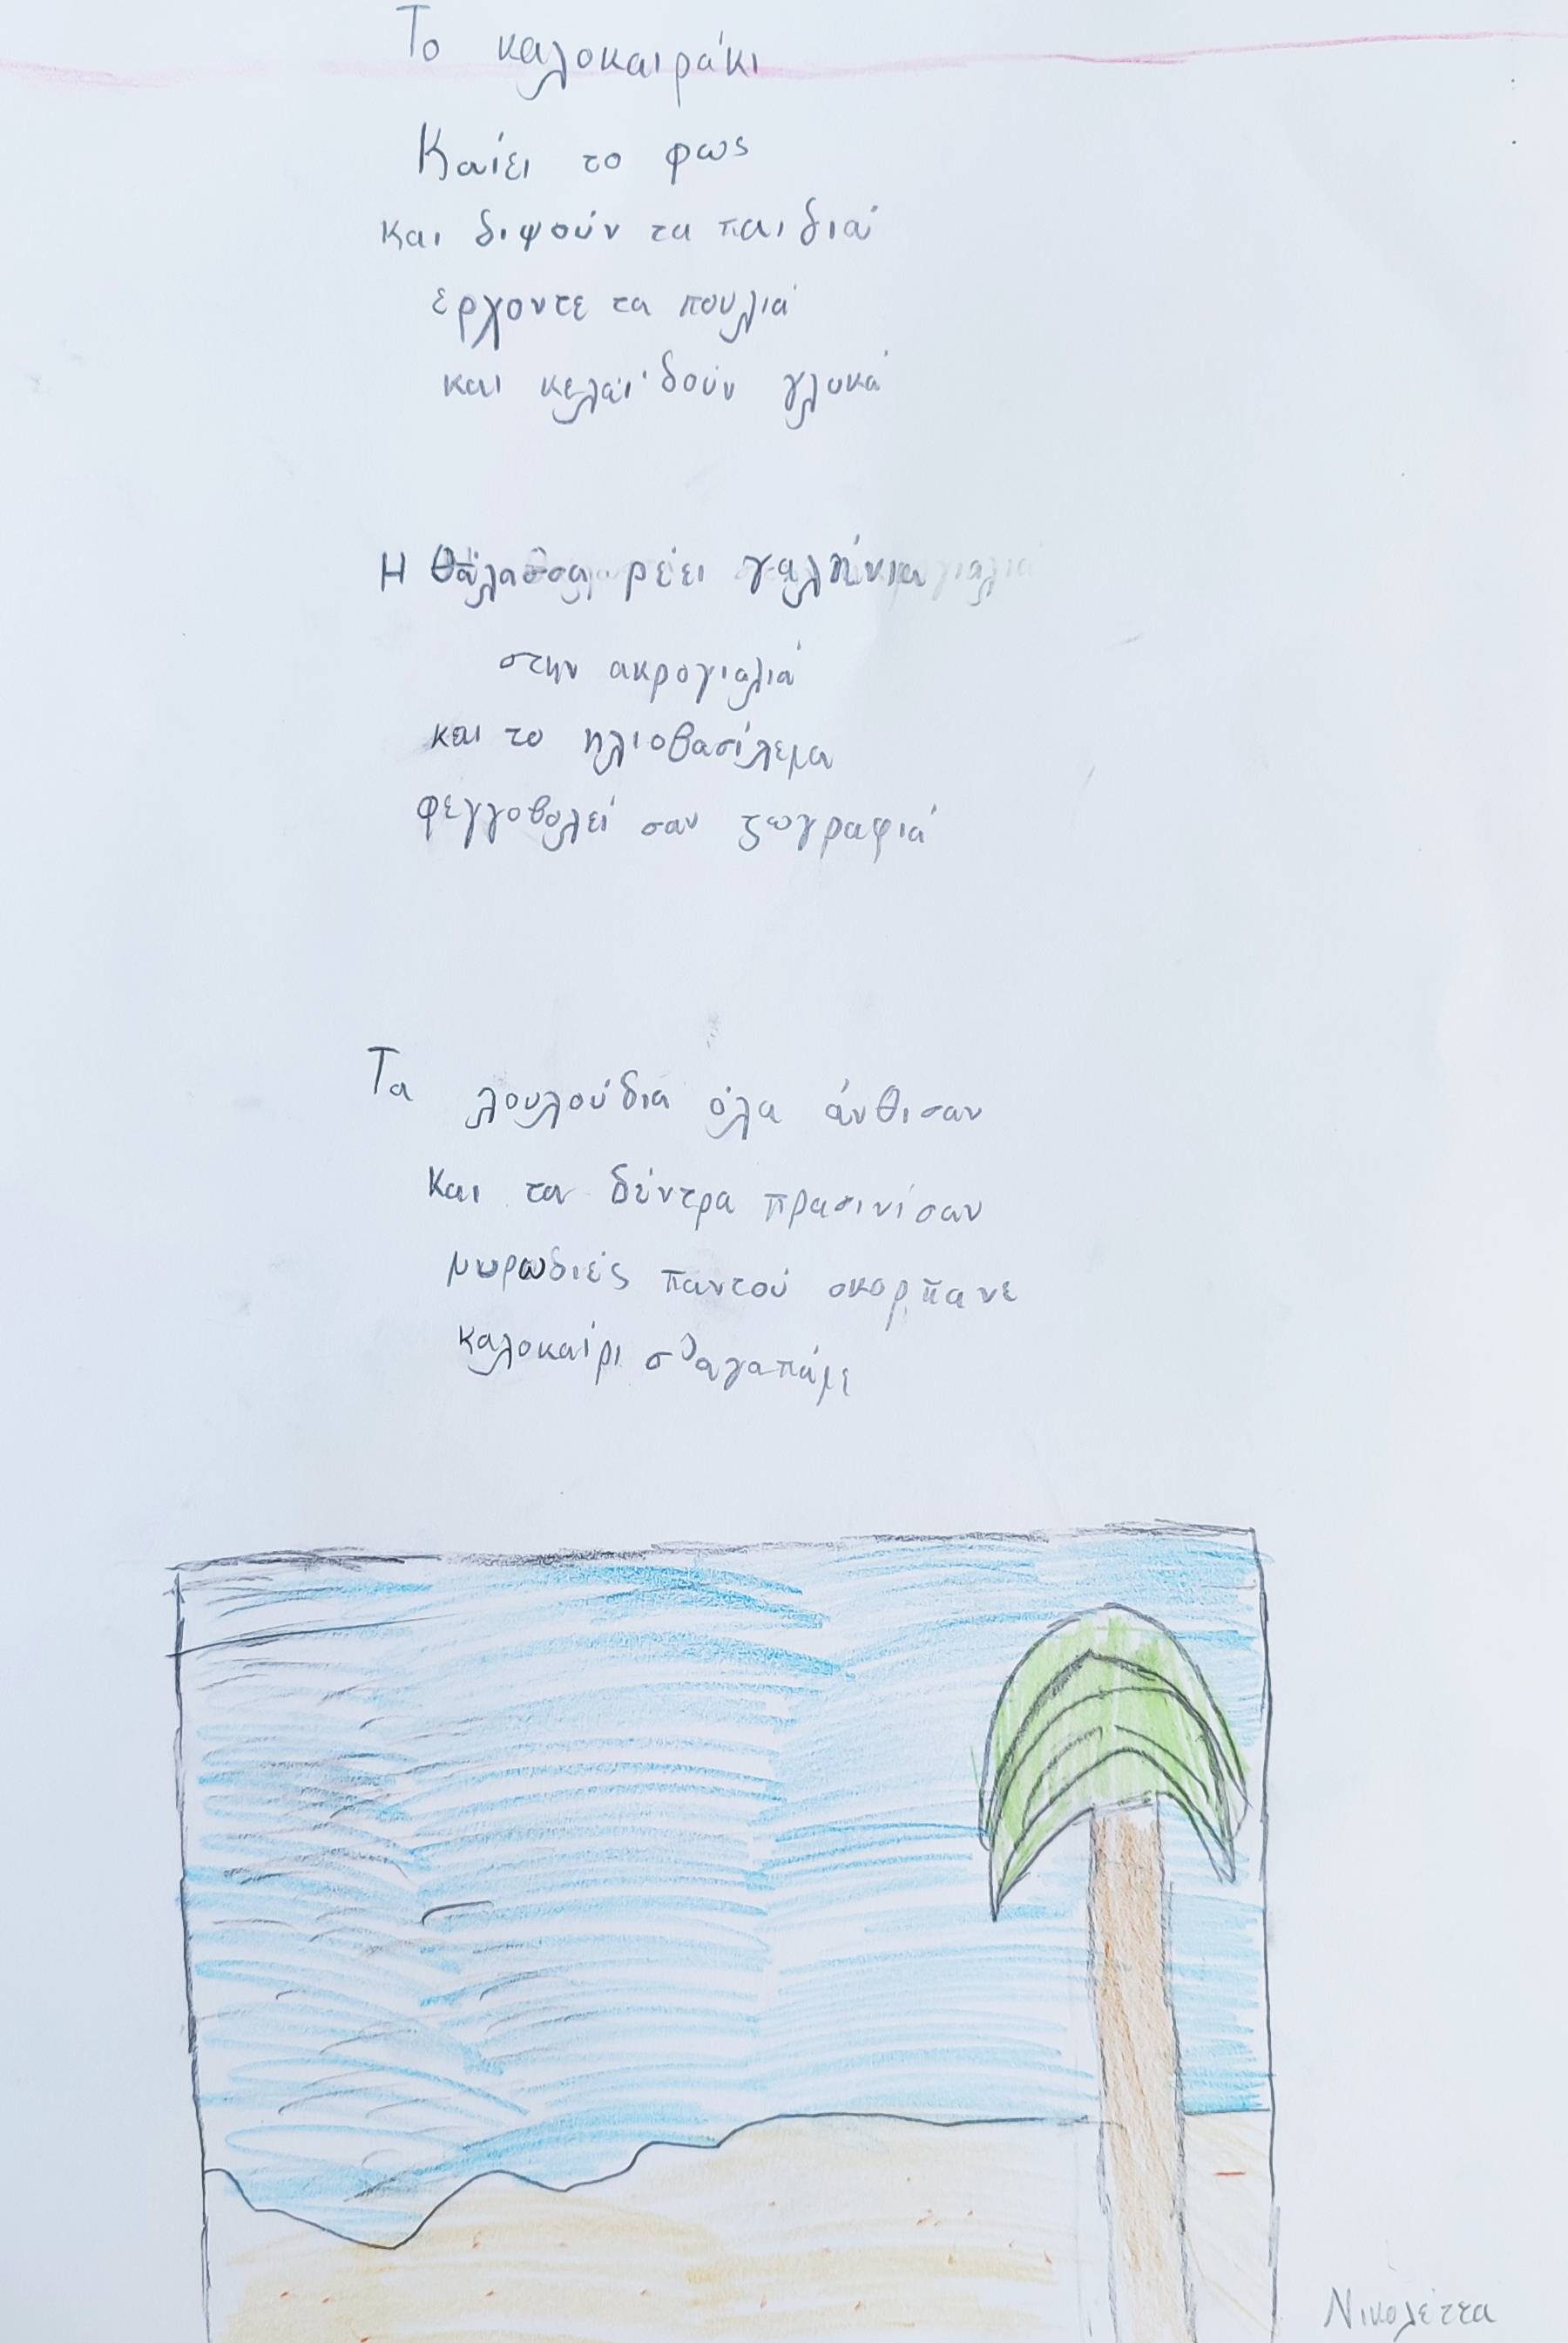 Το καλοκαιράκι
Καίει το φως
και διψούν τα παιδιά
ερχοντε τα πουλιά
και κελαϊδούν γλυκά
Η θάλασσα ρέει γαλήνια
στην ακρογιαλιά
και το ηλιοβασίλεμα
φεγγοβολεί σαν ζωγραφιά
Τα λουλούδια όλα άνθισαν
Και τα δέντρα πρασινίσαν
μυρωδιές παντού σκορπανε
καλοκαίρι σ'αγαπάμε
Νικολέττα